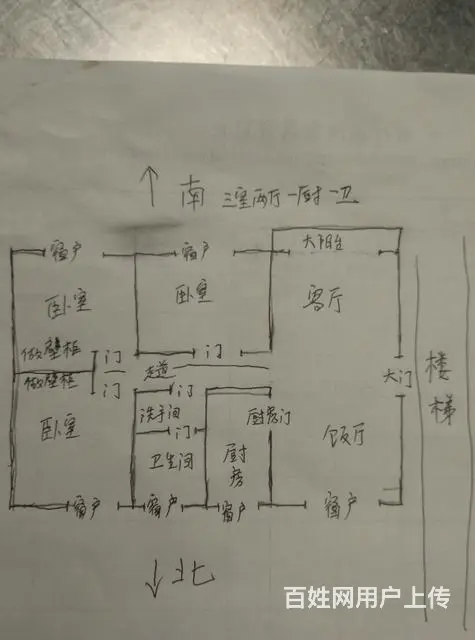 南 三室两厅一厨一卫
窗户
窗户
大阳台
卧室
卧室
客厅
做壁柜
门
门
做壁柜
门
走道
大门
楼梯
卧室
洗手间
门
厨房门
饭厅
门
卫生间
厨房
窗户
窗户
窗户
窗户
北
百姓网用户上传